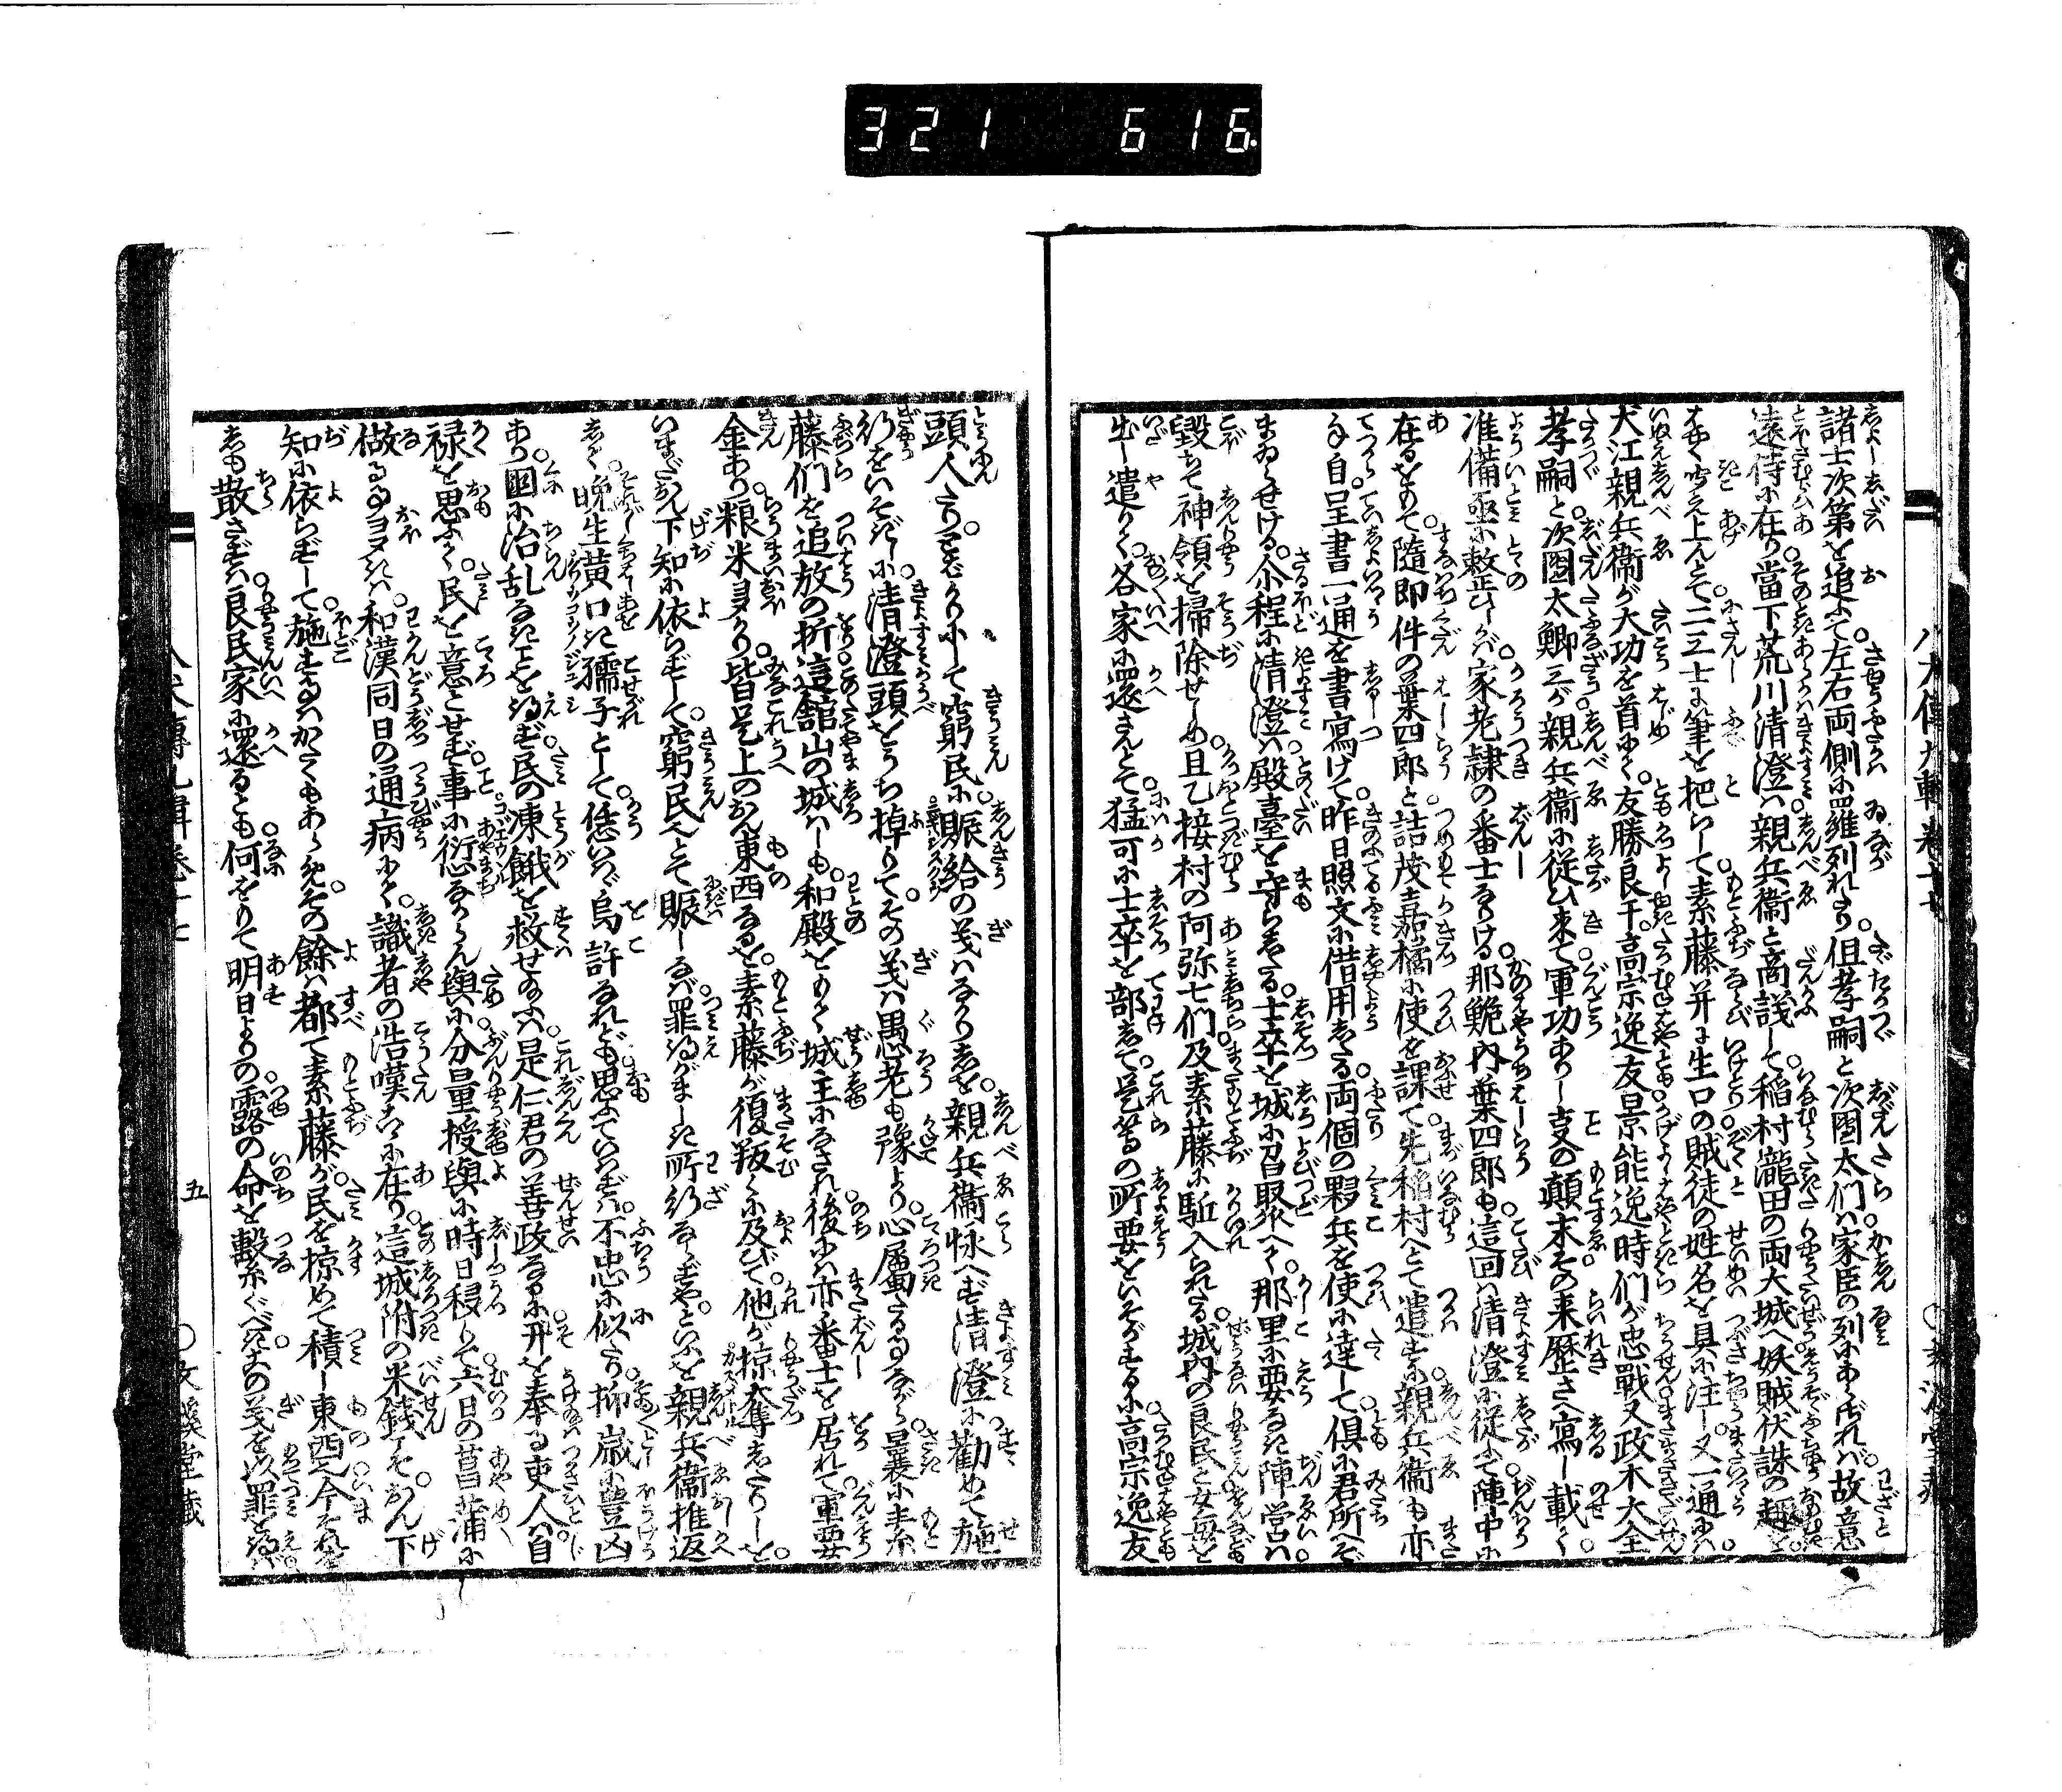 321 616
諸士次第を追ふて左右両側に羅列れたり但孝嗣と次團太們は家臣の列にあらざれば故意
遠侍に在り當下荒川清澄は親兵衞と商議して稲村瀧田の両大城へ妖賊伏誅の趣を
はやく聞え上んとて二三士に筆を把らして素藤并に生口の賊徒の姓名を具に注し又一通には
犬江親兵衞が大功を首にて友勝良干高宗逸友景能逸時們が忠戰又政木大全
孝嗣と次團太鯽三が親兵衞に従ひ来て軍功ありし事の顛末その来歴さへ寫し載て
准備亟に整ひしが家老隷の番士なりける那鮠内葉四郎も這回は清澄に従ふて陣中に
在るをもて隨即件の葉四郎と詰茂嘉橘に使を課て先稲村へとて遣すに親兵衞も亦
手自呈書一通を書寫けて昨日照文に借用したる両個の夥兵を使に達して倶に君所へぞ
まゐらせける尒程に清澄は殿臺を守らしたる士卒を城に召聚へて那里に要なき陣営は
毀たせ神領を掃除せしめ且乙接村の阿弥七們及素藤に駈入られたる城内の良民と女毎を
出し遣りて各家に還さんとて猛可に士卒を部して是等の所要をいそがするに高宗逸友
頭人たりこれかりにして窮民に賑給の義はなかりしを親兵衞怺へず清澄に勧めて施
行をいそがしに清澄頭をうち掉りてその義は愚老も豫より心屬たるものながら曩に素
藤們を追放の折這舘山の城はしも和殿をもて城主にせられ後には亦番士を居れて軍要
金あり粮米多かり皆是上のおん東西なるを素藤が復叛に及びて他が掠奪したりしを
いまだおん下知に依らずして窮民へとて賑しなば罪得がましき所行ならずやといふを親兵衞推返
して晩生黄口き孺子として恁いはゞ烏許なれども思ふていはずは不忠に似たり抑歳に豊凶
あり國に治乱なきことを得ず民の凍餓を救せ給ふは是仁君の善政なるに升を奉る吏人は自
禄を思ふて民を意とせず事に愆あらん與に分量授與に時日移りて六日の菖蒲に
做るもヨヌきは和漢同日の通病にて識者の浩嘆こゝに在り這城附の米銭こそおん下
知に依らずして施すはかたくもあらめその餘は都て素藤が民を掠めて積し東西今それを
しも散さずは良民家に還るとも何をもて明日よりの露の命を繋ぐべきこの義を以罪を得ば
五